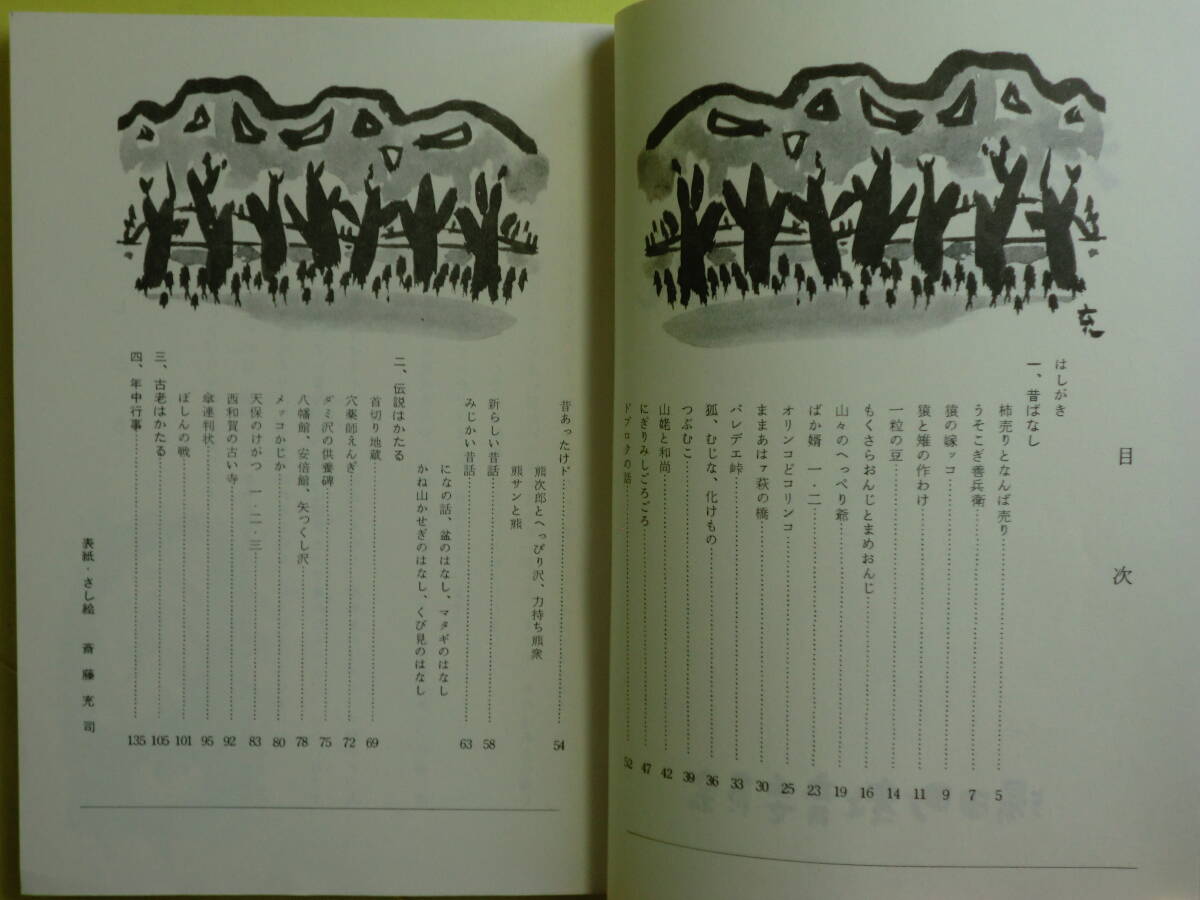 目次
はしがき
一、昔ばなし
柿売りとなんば売り 5
うそこぎ善兵衛 7
猿の嫁ッコ 9
猿と雉の作わけ 11
一粒の豆 14
もくさらおんじとまめおんじ 16
山々のへっぺり爺 19
ばか婿 一・二 23
オリンコどコリンコ 25
ままあはァ萩の橋 30
バレデエ峠 33
狐、むじな、化けもの 36
つぶむこ 39
山姥と和尚 42
にぎりみしごろごろ 47
ドブロクの話 52
昔あったけド 54
熊次郎とへっぴり沢、力持ち熊衆
熊サンと熊
新らしい昔話 58
みじかい昔話 63
になの話、盆のはなし、マタギのはなし
かね山かせぎのはなし、くび見のはなし
二、伝説はかたる
首切り地蔵 69
穴薬師えんぎ 72
ダミ沢の供養碑 75
八幡館、安倍館、矢つくし沢 78
メッコかじか 80
天保のけがつ 一・二・三 83
西和賀の古い寺 92
傘連判状 95
ぼしんの戦 101
三、古老はかたる 105
四、年中行事 135
表紙・さし絵 斎藤充司
充